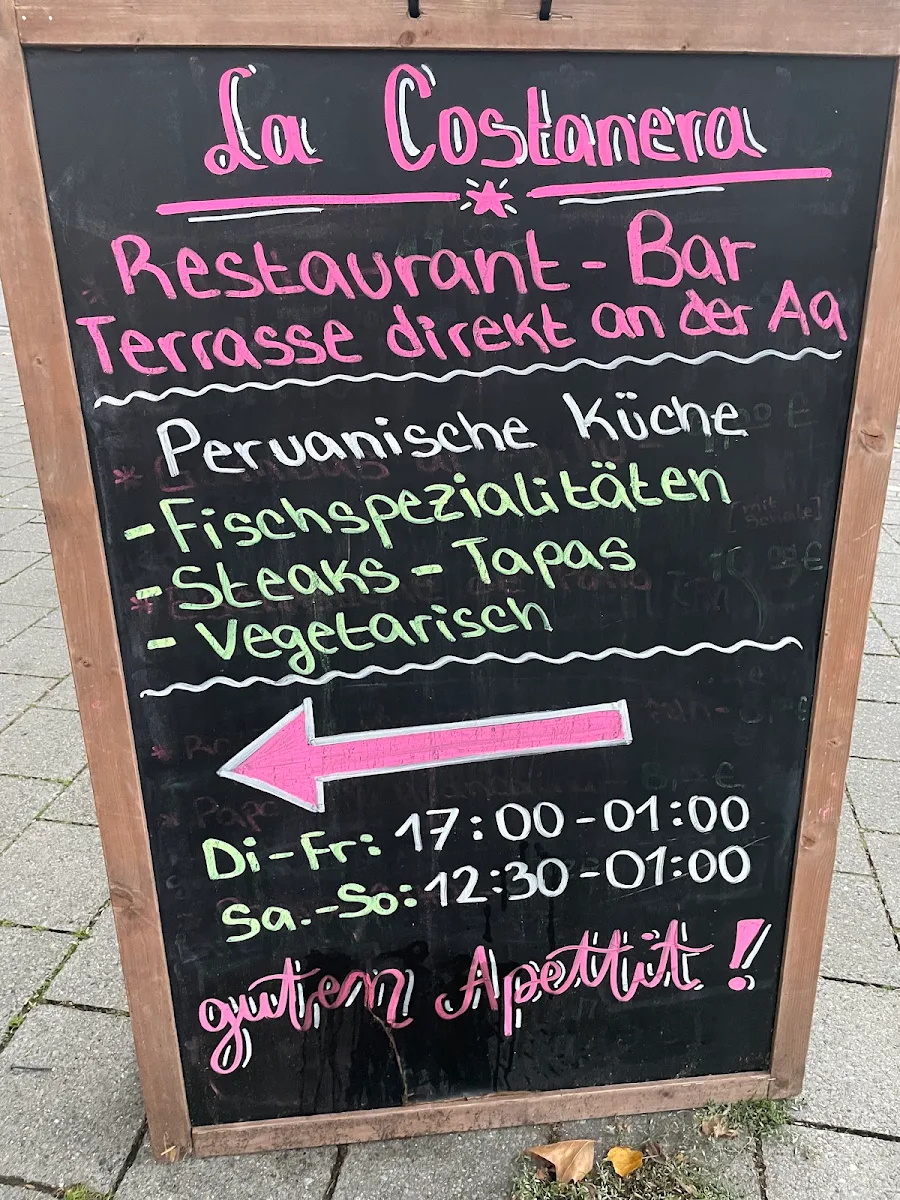 La Costanera
Restaurant - Bar
Terrasse direkt an der Aa
Peruanische Küche
- Fischspezialitäten
- Steaks - Tapas
- Vegetarisch
[mit
Schale]
Di-Fr: 17:00-01:00
Sa.-So: 12:30-01:00
guten Apettit !